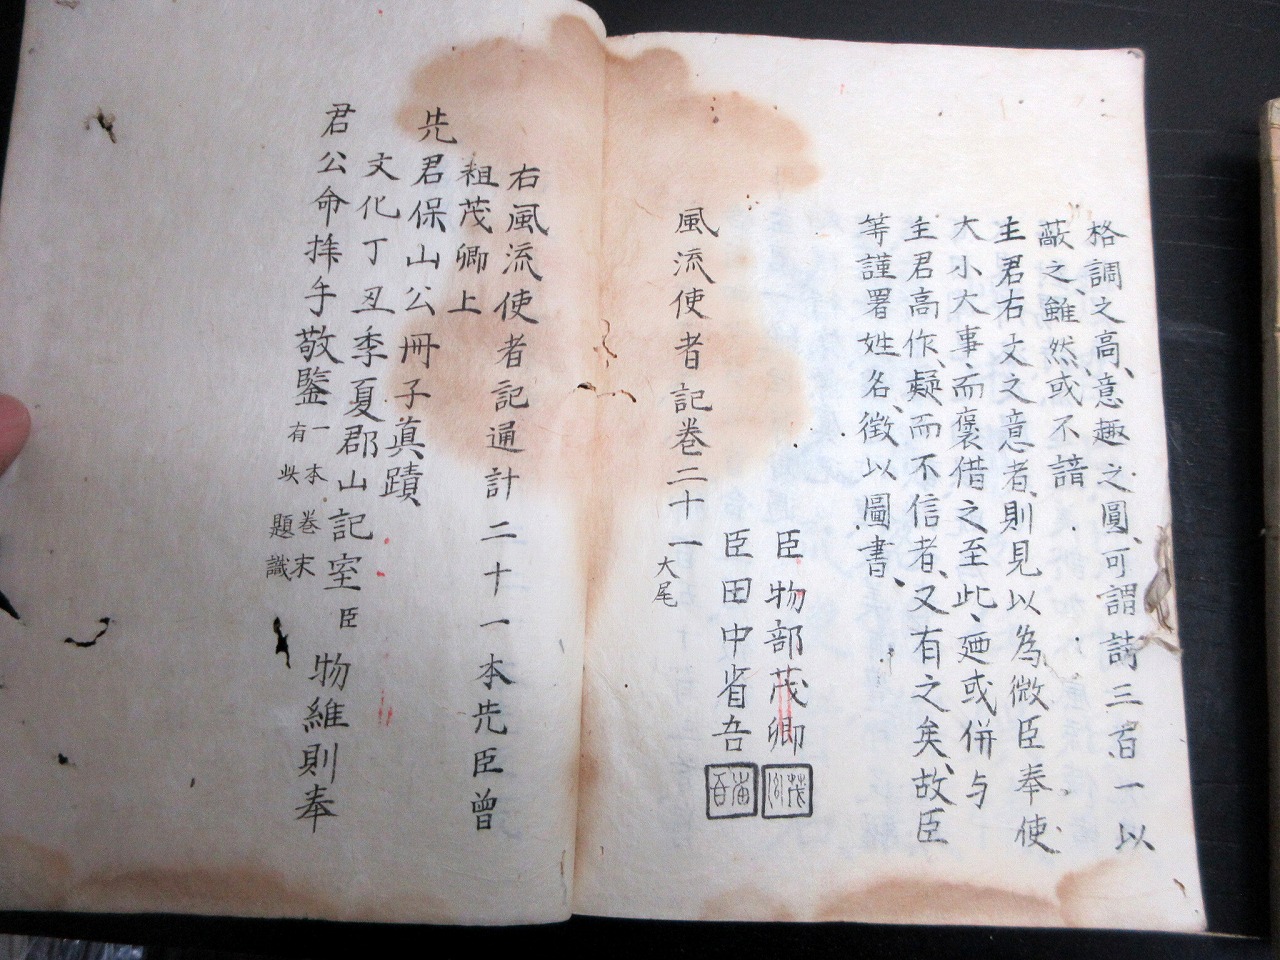 格調之高、意趣之圓、可謂詩三百一以
蔽之、雖然或不諳
主君右文之意者、則見以為微臣奉使、
大小大事、而褒借之至此、廼或併与
主君高作、疑而不信者、又有之矣、故臣
等謹署姓名、徴以圖書、
臣物部茂卿
臣田中省吾
風流使者記巻二十一大尾
右風流使者記通計二十一本先臣曾
祖茂卿上
先君保山公冊子眞蹟
文化丁丑季夏郡山記室臣物維則奉
君公命拜手敬鑒
一本巻末
有此題識